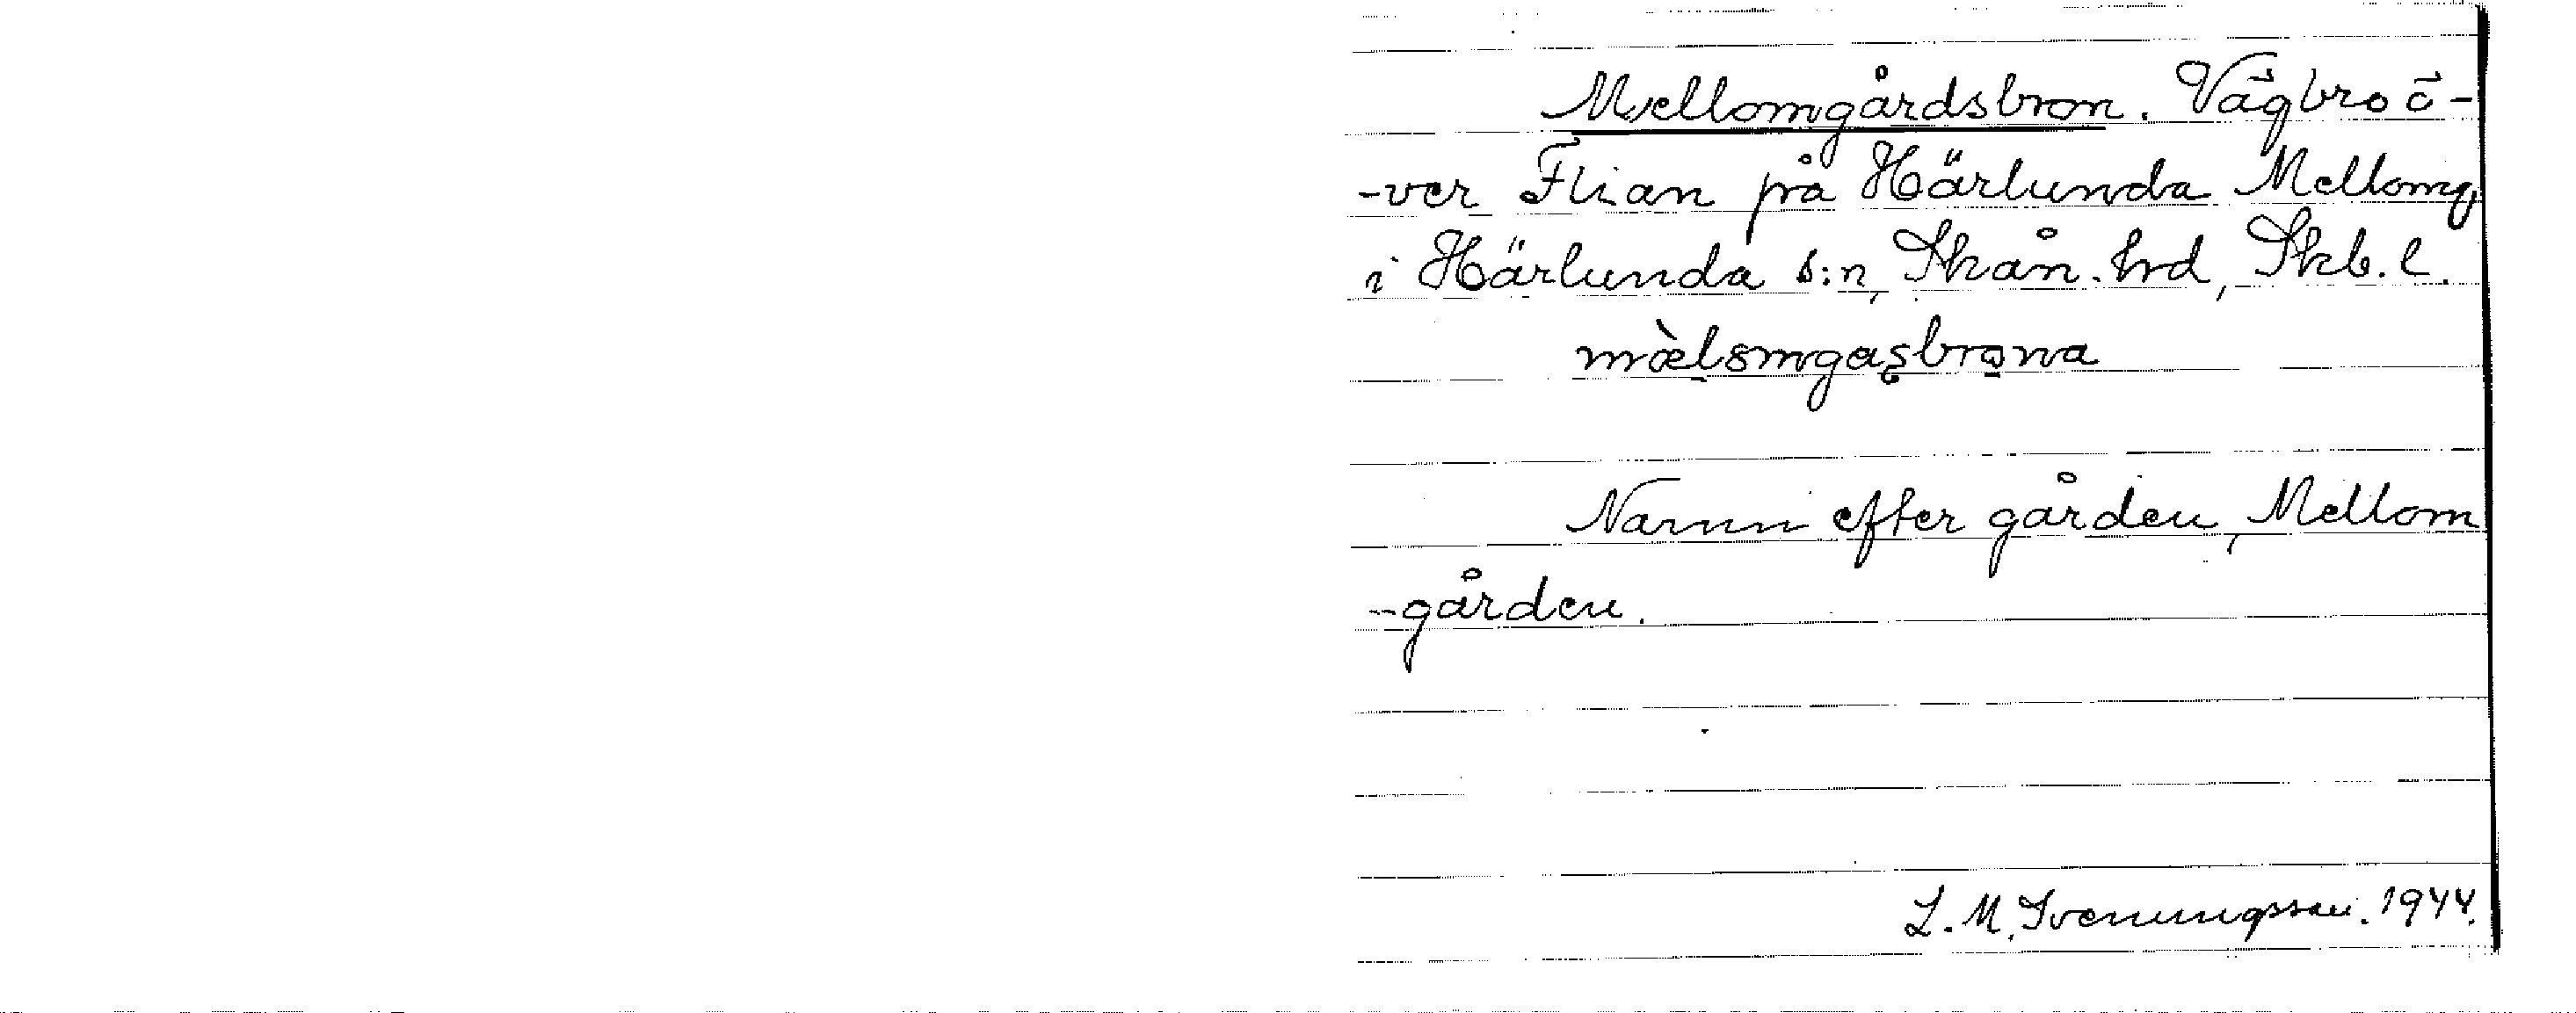 Mellomgårdsbron. Vägbro ö-
-ver Flian på Härlunda Mellomg,
i Härlunda s:n, Skån. hrd, Skb. l.
mæ̀lsmgaʂbrǫna
Namn efter gården, Mellom
-gården.
L. M. Svenungsson. 1944.